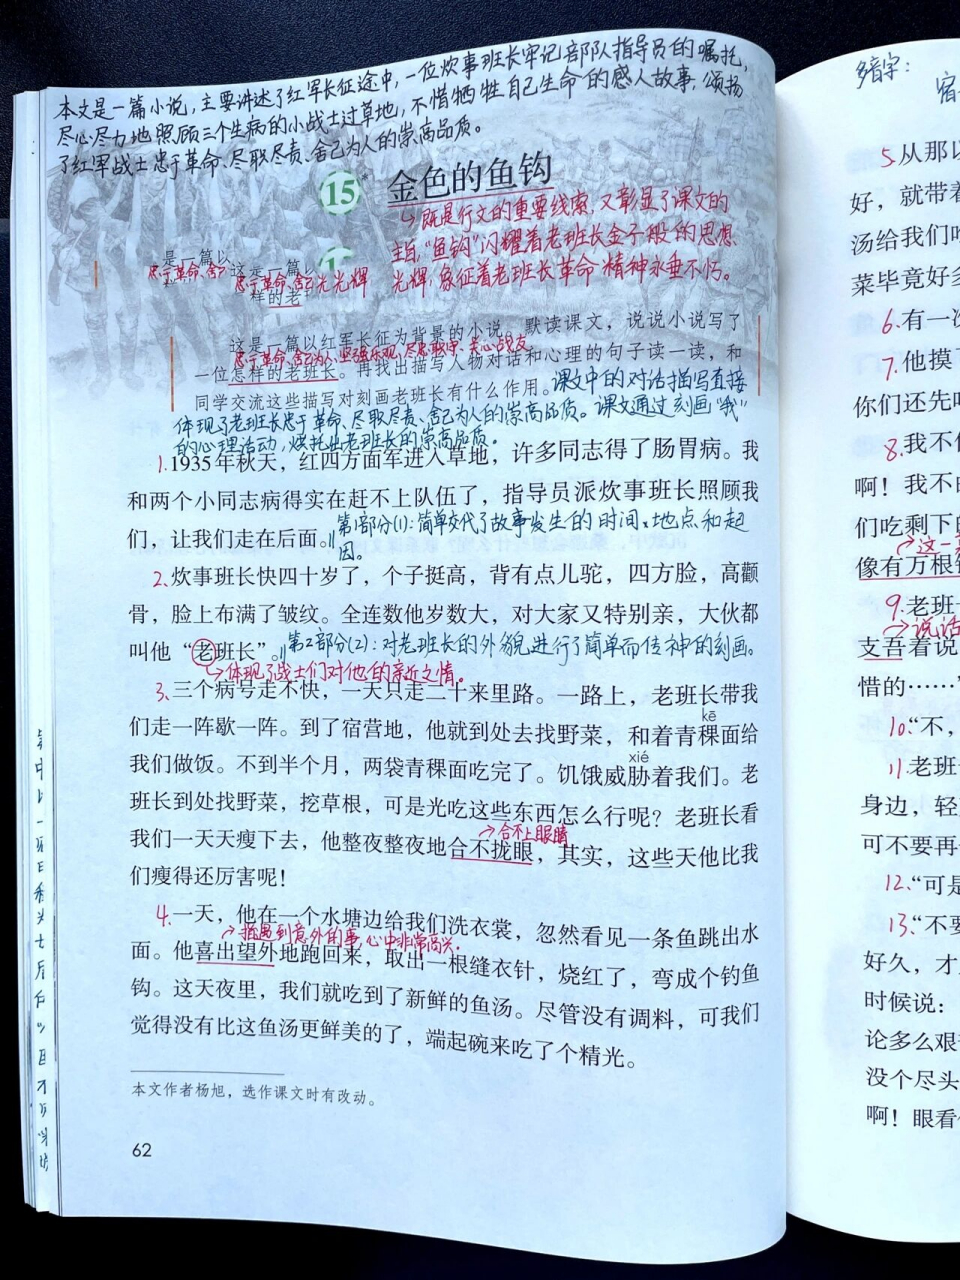 本文是一篇小说,主要讲述了红军长征途中,一位炊事班长牢记部队指导员的嘱托,
尽心尽力地照顾三个生病的小战士过草地,不惜牺牲自己生命的感人故事,颂扬
了红军战士忠于革命、尽职尽责、舍己为人的崇高品质。
15* 金色的鱼钩
→既是行文的重要线索,又彰显了课文的
主旨,“鱼钩”闪耀着老班长金子般的思想
光辉,象征着老班长革命精神永垂不朽。
是一篇以
忠于革命、舍己
这是一篇以
忠于革命、舍己光光辉
样的老
这是一篇以红军长征为背景的小说。默读课文,说说小说写了
忠于革命、舍己为人、坚强乐观、尽忠职守、关心战友
一位怎样的老班长。再找出描写人物对话和心理的句子读一读,和
同学交流这些描写对刻画老班长有什么作用。课文中的对话描写直接
体现了老班长忠于革命、尽职尽责、舍己为人的崇高品质。课文通过刻画“我”
的心理活动,烘托出老班长的崇高品质。
1.1935年秋天,红四方面军进入草地,许多同志得了肠胃病。我
和两个小同志病得实在赶不上队伍了,指导员派炊事班长照顾我
们,让我们走在后面。‖第1部分(1):简单交代了故事发生的时间、地点和起
因。
2.炊事班长快四十岁了,个子挺高,背有点儿驼,四方脸,高颧
骨,脸上布满了皱纹。全连数他岁数大,对大家又特别亲,大伙都
叫他“老班长”。‖第2部分(2):对老班长的外貌进行了简单而传神的刻画。
→体现了战士们对他的亲近之情。
3.三个病号走不快,一天只走二十来里路。一路上,老班长带我
们走一阵歇一阵。到了宿营地,他就到处去找野菜,和着青稞面给
kē
我们做饭。不到半个月,两袋青稞面吃完了。饥饿威胁着我们。老
xié
班长到处找野菜,挖草根,可是光吃这些东西怎么行呢?老班长看
我们一天天瘦下去,他整夜整夜地合不拢眼,其实,这些天他比我
→合不上眼睛
们瘦得还厉害呢!
4.一天,他在一个水塘边给我们洗衣裳,忽然看见一条鱼跳出水
→指遇到意外的事,心中非常高兴。
面。他喜出望外地跑回来,取出一根缝衣针,烧红了,弯成个钓鱼
钩。这天夜里,我们就吃到了新鲜的鱼汤。尽管没有调料,可我们
觉得没有比这鱼汤更鲜美的了,端起碗来吃了个精光。
本文作者杨旭,选作课文时有改动。
62
多音字:
宿
5.从那以
好,就带着
汤给我们吃
菜毕竟好多
6.有一次
7.他摸了
你们还先吃
8.我不信
啊!我不由
们吃剩下的
→这一
像有万根针
9.老班长
→说话
支吾着说
惜的……”
10.“不,
11.老班长
身边,轻
可不要再
12.“可是
13.“不要
好久,才
时候说:
论多么艰
没个尽头
啊!眼看